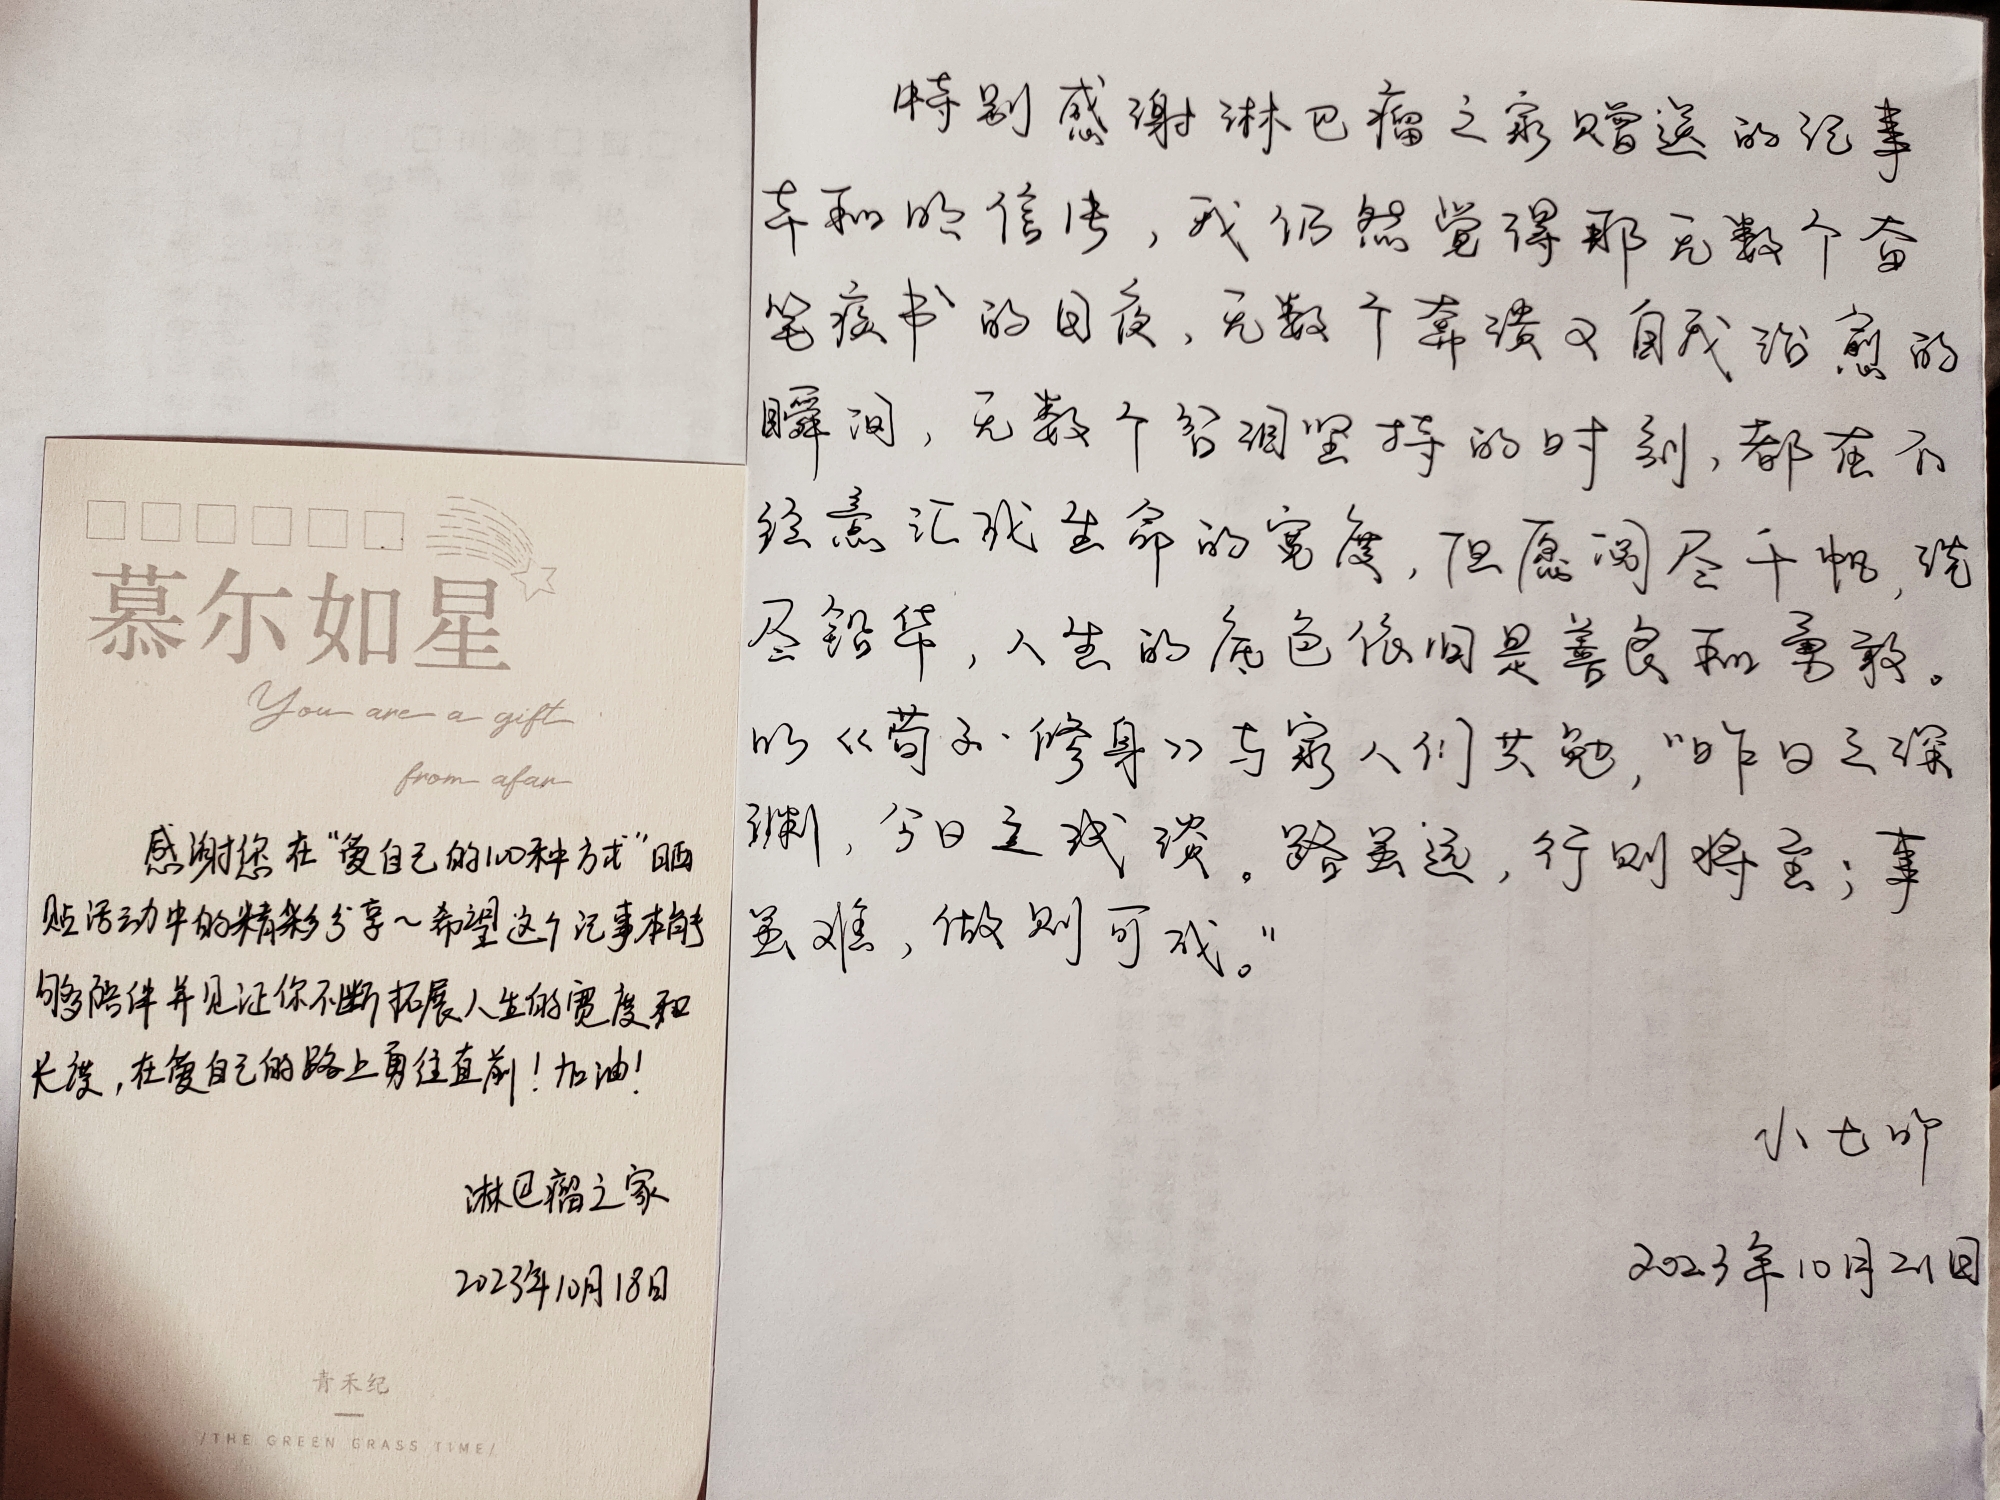 慕尔如星
You are a gift
from afar
感谢您在“爱自己的100种方式”晒
贴活动中的精彩分享～希望这个记事本能
够陪伴并见证你不断拓展人生的宽度和
长度，在爱自己的路上勇往直前！加油！
淋巴瘤之家
2023年10月18日
青禾纪
/THE GREEN GRASS TIME/
特别感谢淋巴瘤之家赠送的记事
本和明信片，我仍然觉得那无数个奋
笔疾书的日夜，无数个奔溃又自我治愈的
瞬间，无数个含泪坚持的时刻，都在不
经意汇成生命的宽度，但愿阅尽千帆，洗
尽铅华，人生的底色依旧是善良和勇敢。
以《荀子·修身》与家人们共勉，“昨日之深
渊，今日之浅谈。路虽远，行则将至；事
虽难，做则可成。”
小七
2023年10月21日